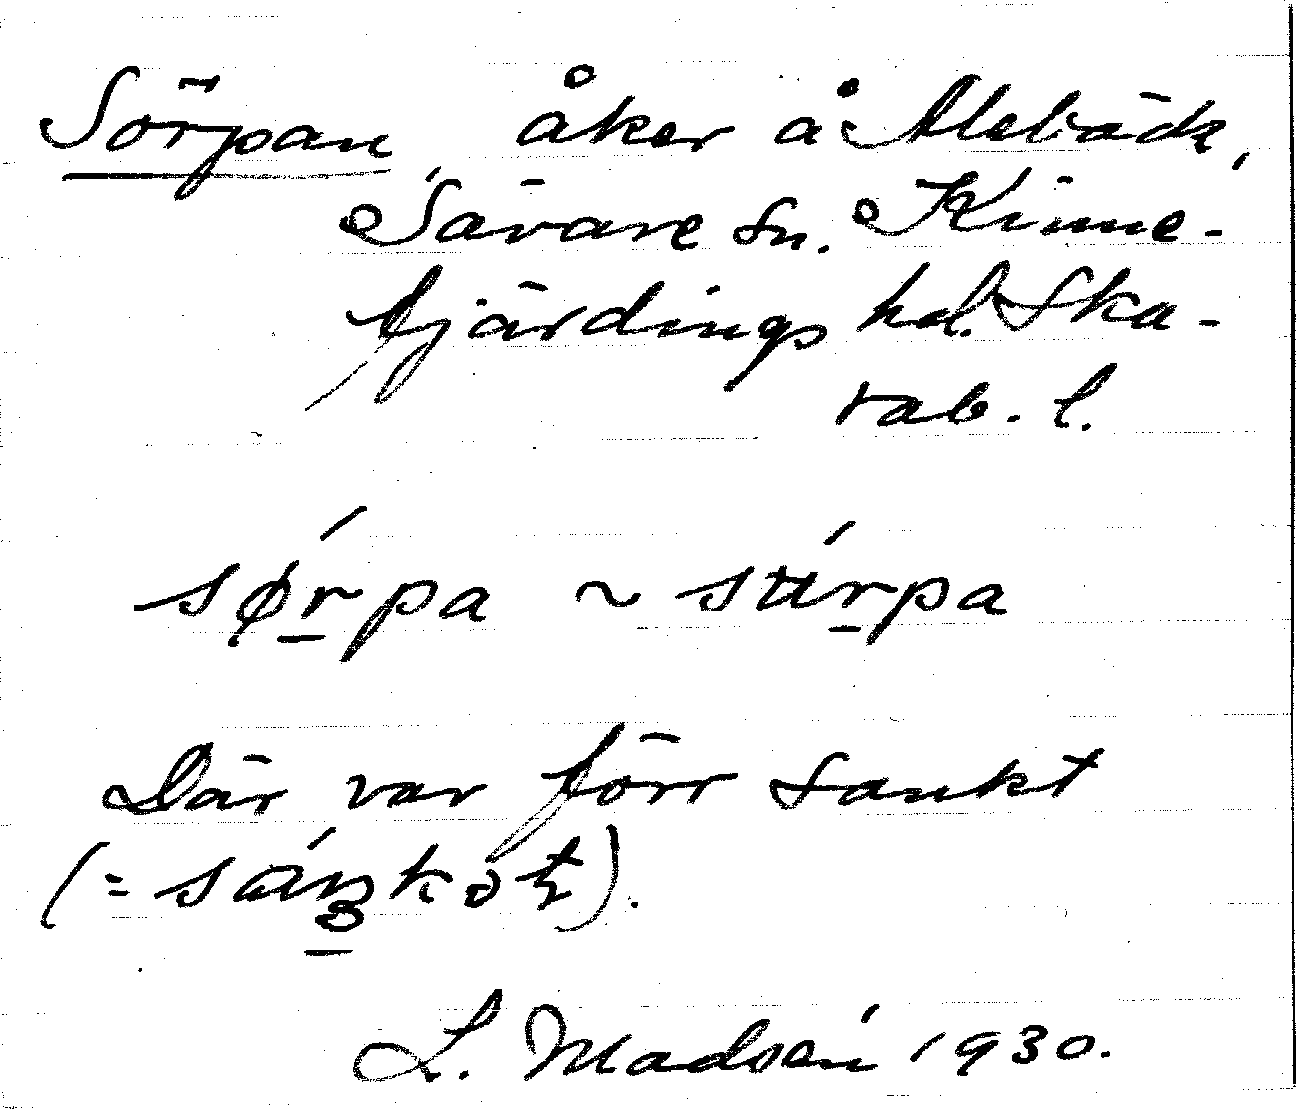 Sörpan, åker å Alebäck,
Sävare sn. Kinne-
fjärdings hd. Ska-
rab. l.
sǿr̲pa ~ sʉ́r̲pa
Där var förr sankt
(= sáŋ̲kət).
L. Madsén 1930.